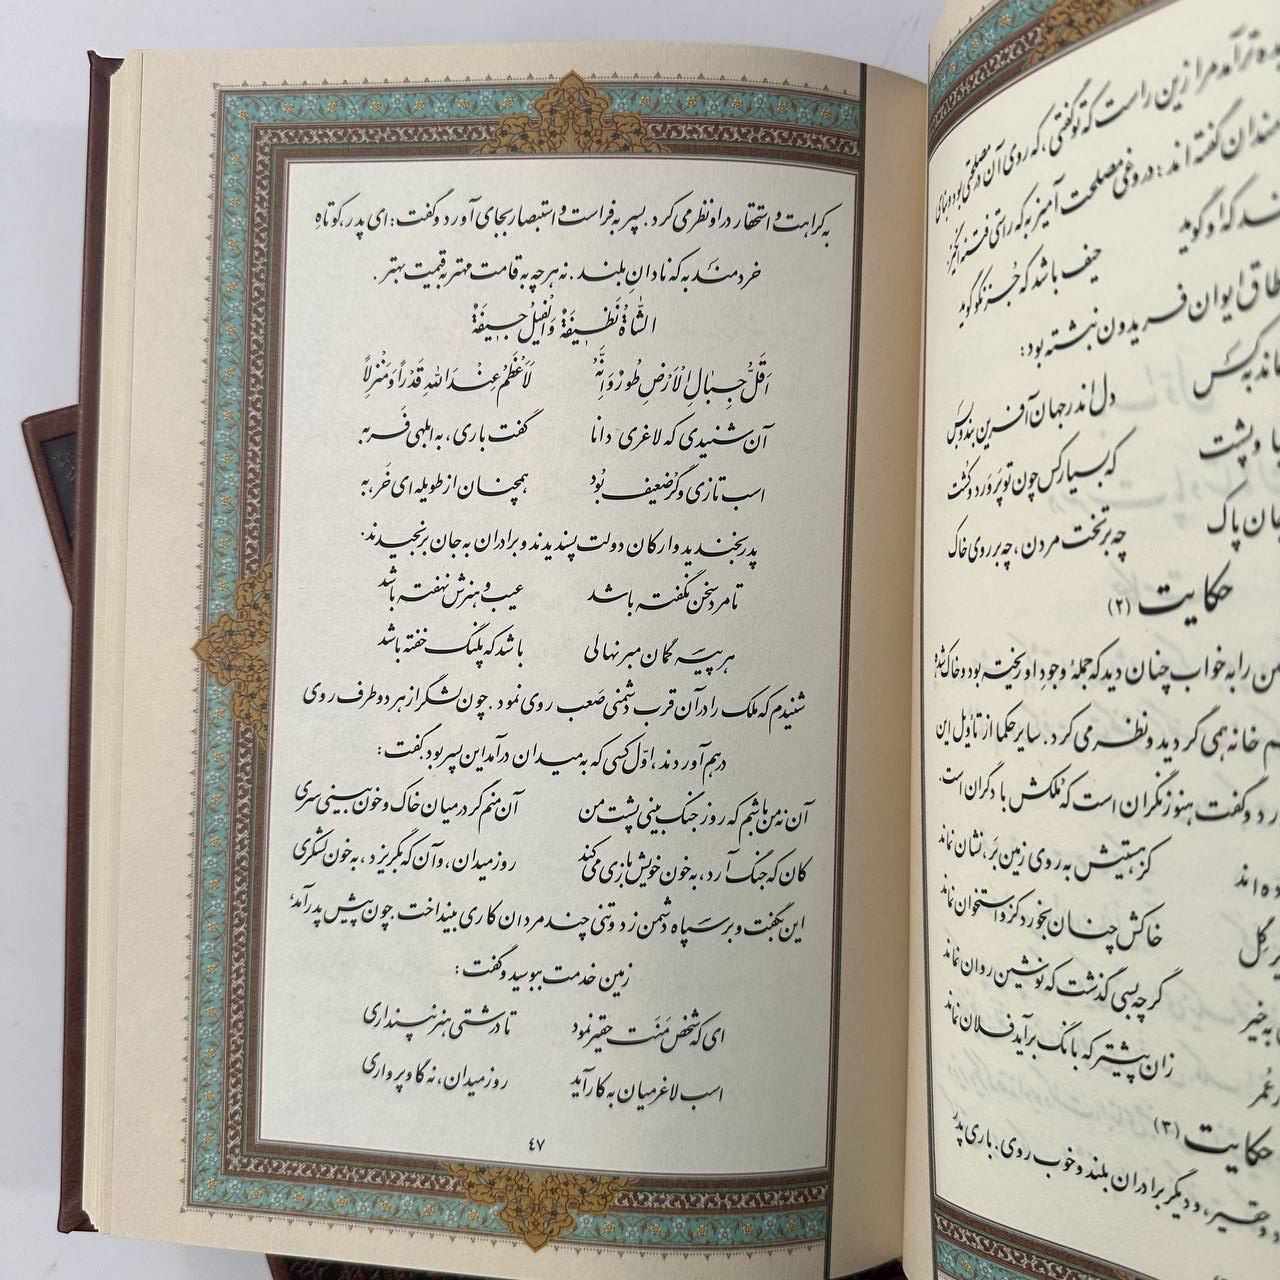 ده‌تر آمد مرا زین راست که تو گفتی، که روی آن در مصلحتی بود و بنای
مندان گفته‌اند: دروغی مصلحت آمیز به که راستی فتنه انگیز.
ند که او گوید
حیف باشد که جُز نکو گوید
طاق ایوان فریدون نبشته بود:
ماند به کَس
دل اندر جهان آفرین بند و بَس
یا و پشت
که بسیار کس چون تو پَروَرد و کشت
جان پاک
چه بر تخت مردن، چه بر روی خاک
حکایت (۲)
من را به خواب چنان دید که جملهٔ وجودِ او ریخته بود و خاک شده
م خانه همی گردید و نظر می‌کرد. سایر حکما از تأویل این
رد و گفت هنوز نگران است که مُلکش با دگران است.
ده‌اند
کز هستیش به روی زمین بَر، نشان نماند
رِ گِل
خاکش چنان بخورد کزو استخوان نماند
به خیر
گر چه بسی گذشت که نوشین روان نماند
عُمر
زان پیشتر که بانگ بر آید فلان نماند
حکایت (۳)
و حقیر، و دیگر برادران بلند و خوب روی. باری پدر
به کراهت و استحقار در او نظر می‌کرد. پسر به فراست و استبصار بجای آورد و گفت: ای پدر، کوتاهِ
خردمند به که نادانِ بلند. نه هر چه به قامت مهتر به قیمت بهتر.
الشّاةُ نَظیفَةٌ وَ الْفیلُ جیفَةٌ
اَقَلُّ جِبالِ الْاَرْضِ طُورٌ وَ اِنَّهُ
لَاَعْظَمُ عِنْدَ اللهِ قَدْراً وَ مَنْزِلاً
آن شنیدی که لاغری دانا
گفت باری، به ابلهی فَربه
اسب تازی و گر ضعیف بُود
همچنان از طویله‌ای خَر، به
پدر بخندید و ارکان دولت پسندیدند و برادران به جان برنجیدند.
تا مرد سخن نگفته باشد
عیب و هنرش نهفته باشد
هر پیسه گمان مبر نهالی
باشد که پلنگ خفته باشد
شنیدم که ملک را در آن قرب دشمنی صَعب روی نمود. چون لشگر از هر دو طرف روی
درهم آوردند، اوّل کسی که به میدان درآمد این پسر بود گفت:
آن نه من باشم که روز جنگ بینی پشت من
آن منم گر در میان خاک و خون بینی سری
کان که جنگ آرد، به خون خویش بازی می‌کند
روز میدان، وآن که بگریزد، به خون لشکری
این بگفت و بر سپاه دشمن زد و تنی چند مردان کاری بینداخت. چون پیش پدر آمد،
زمین خدمت ببوسید و گفت:
ای که شخص مَنَت حقیر نمود
تا درشتی هنر نپنداری
اسب لاغر میان به کار آید
روز میدان، نه گاو پرواری
٤٧